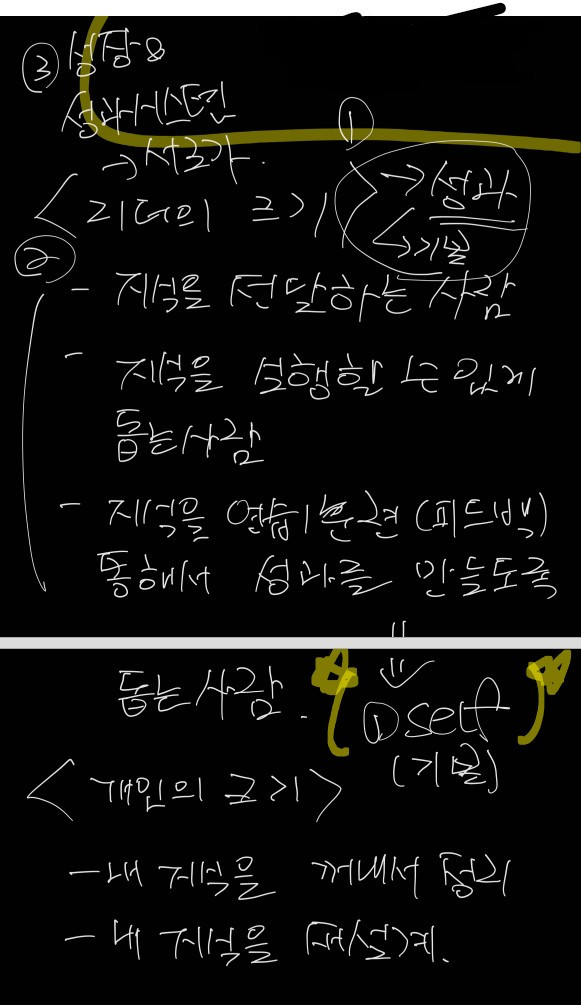 ③ 성장 &
성과시스템
→ 서로가.
①
<리더의 크기> → 성과
→ 기물
②
- 지식을 전달하는 사람
- 지식을 실행할 수 있게
돕는 사람
- 지식을 연습/훈련 (피드백)
통해서 성과를 만들도록
돕는 사람.
① self
(기물)
<개인의 크기>
- 내 지식을 꺼내서 정리
- 내 지식을 재설계.